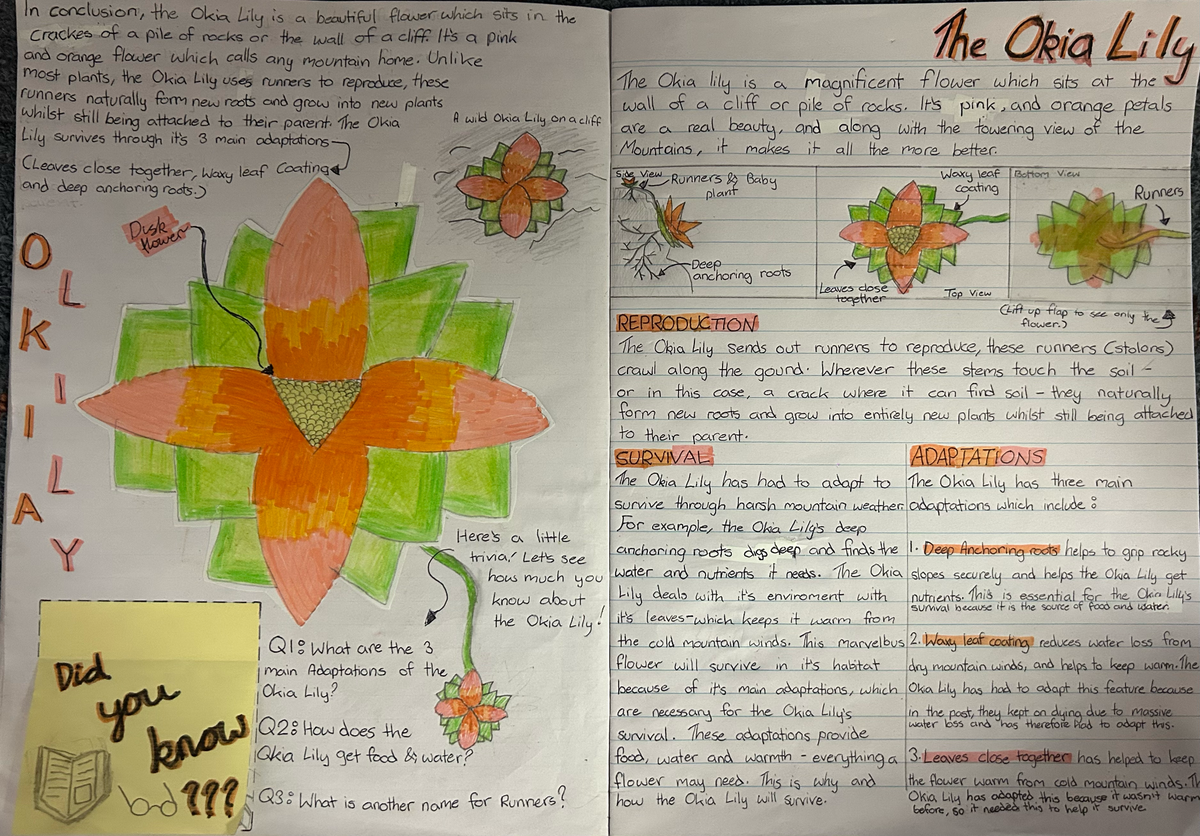 In conclusion, the Okia Lily is a beautiful flower which sits in the
crackes of a pile of rocks or the wall of a cliff. It's a pink
and orange flower which calls any mountain home. Unlike
most plants, the Okia Lily uses runners to reproduce, these
runners naturally form new roots and grow into new plants
whilst still being attached to their parent. The Okia
Lily survives through it's 3 main adaptations
(Leaves close together, Waxy leaf Coating
and deep anchoring roots.)
A wild Okia Lily on a cliff
Disk
flower
OKIA
LILY
Here's a little
trivia! Let's see
how much you
know about
the Okia Lily!
Q1: What are the 3
main Adaptations of the
Okia Lily?
Q2: How does the
Okia Lily get food & water?
Q3: What is another name for Runners?
Did
you
know
???
The Okia Lily
The Okia lily is a magnificent flower which sits at the
wall of a cliff or pile of rocks. It's pink, and orange petals
are a real beauty, and along with the towering view of the
Mountains, it makes it all the more better.
Side View
Runners & Baby
plant
Deep
anchoring roots
Waxy leaf
coating
Leaves close
together
Top View
Bottom View
Runners
(Lift up flap to see only the
flower.)
REPRODUCTION
The Okia Lily sends out runners to reproduce, these runners (stolons)
crawl along the gound. Wherever these stems touch the soil -
or in this case, a crack where it can find soil - they naturally
form new roots and grow into entirely new plants whilst still being attached
to their parent.
SURVIVAL
The Okia Lily has had to adapt to
survive through harsh mountain weather
For example, the Okia Lily's deep
anchoring roots digs deep and finds the
water and nutrients it needs. The Okia
Lily deals with it's enviroment with
it's leaves-which keeps it warm from
the cold mountain winds. This marvelous
flower will survive in it's habitat
because of it's main adaptations, which
are necessary for the Okia Lily's
survival. These adaptations provide
food, water and warmth - everything a
flower may need. This is why and
how the Okia Lily will survive.
ADAPTATIONS
The Okia Lily has three main
adaptations which include:
1. Deep Anchoring roots helps to grip rocky
slopes securely and helps the Okia Lily get
nutrients. This is essential for the Okia Lily's
survival because it is the source of food and water.
2. Waxy leaf coating reduces water loss from
dry mountain winds, and helps to keep warm. The
Okia Lily has had to adapt this feature because
in the past, they kept on dying due to massive
water loss and has therefore had to adapt this.
3. Leaves close together has helped to keep
the flower warm from cold mountain winds.
Okia Lily has adapted this because it wasn't warm
before, so it needed this to help it survive